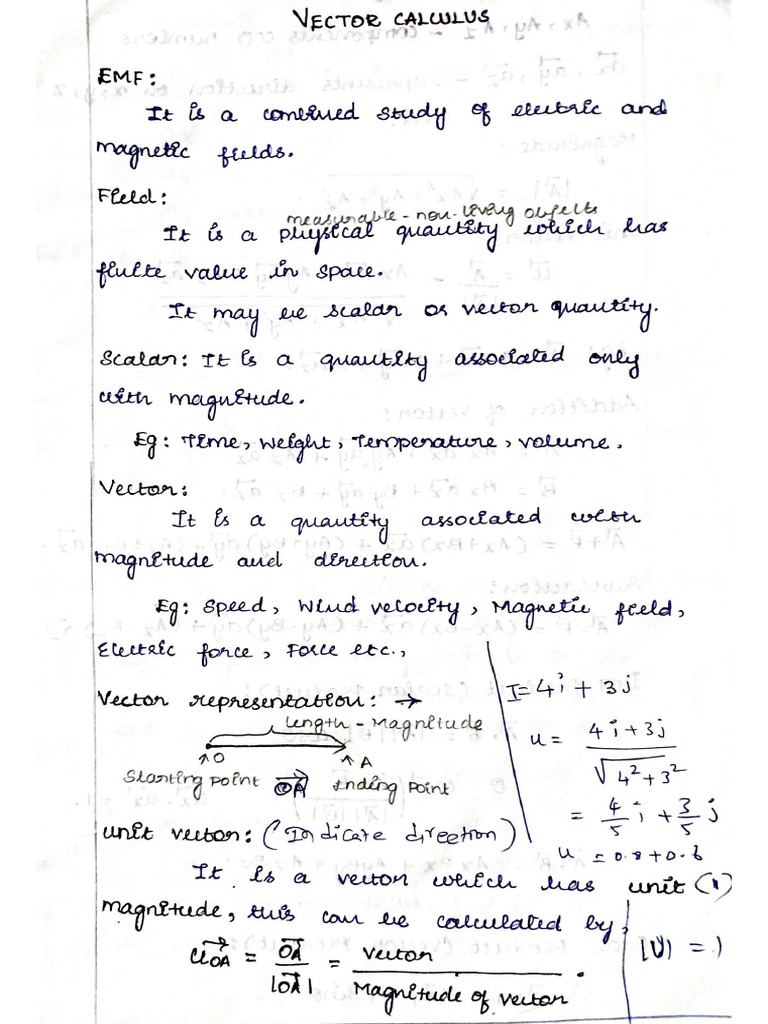 VECTOR CALCULUS
EMF:
It is a combined study of electric and
magnetic fields.
Field:
measurable - non-living objects
It is a physical quantity which has
finite value in space.
It may be scalar or vector quantity.
Scalar: It is a quantity associated only
with magnitude.
Eg: Time, Weight, Temperature, volume.
Vector:
It is a quantity associated with
magnitude and direction.
Eg: Speed, Wind velocity, Magnetic field,
Electric force, Force etc.,
Vector representation: →
length - Magnitude
O A
Starting point OA⃗ Ending Point
Unit vector: (Indicate direction)
It is a vector which has unit (1)
magnitude, this can be calculated by,
U⃗OA = OA⃗ / |OA⃗| = Vector / Magnitude of vector.
I = 4i + 3j
u = 4i + 3j / √4² + 3²
= 4/5 i + 3/5 j
u = 0.8 + 0.6
|U| = 1